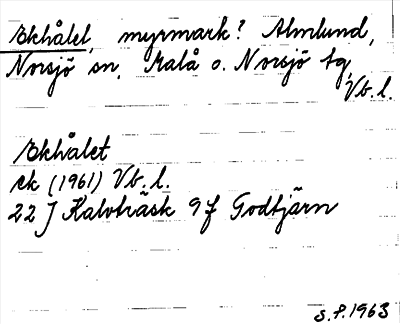 Ekhålet, myrmark? Almlund,
Norsjö sn, Malå o. Norsjö tg,
Vb. l.
Ekhålet
ek (1961) Vb. l.
22 J Kalvträsk 9 f Godtjärn
S.P. 1963